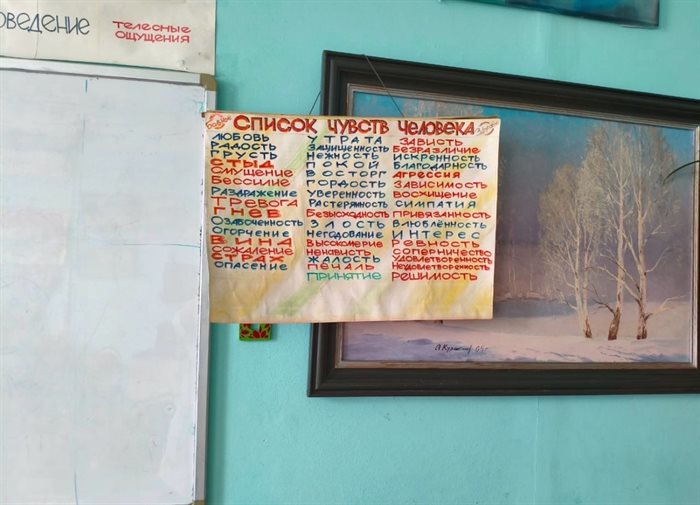 ОВЕДЕНИЕ
ТЕЛЕСНЫЕ
ОЩУЩЕНИЯ
СПИСОК ЧУВСТВ ЧЕЛОВЕКА
ЛЮБОВЬ
РАДОСТЬ
ГРУСТЬ
СТЫД
СМУЩЕНИЕ
БЕССИЛИЕ
РАЗДРАЖЕНИЕ
ТРЕВОГА
ГНЕВ
ОЗАБОЧЕННОСТЬ
ОГОРЧЕНИЕ
ВИНА
СОЖАЛЕНИЕ
СТРАХ
ОПАСЕНИЕ
УТРАТА
ЗАЩИЩЕННОСТЬ
НЕЖНОСТЬ
ПОКОЙ
ВОСТОРГ
ГОРДОСТЬ
УВЕРЕННОСТЬ
РАСТЕРЯННОСТЬ
БЕЗЫСХОДНОСТЬ
ЗЛОСТЬ
НЕГОДОВАНИЕ
ВЫСОКОМЕРИЕ
НЕНАВИСТЬ
ЖАЛОСТЬ
ПЕЧАЛЬ
ПРИНЯТИЕ
ЗАВИСТЬ
БЕЗРАЗЛИЧИЕ
ИСКРЕННОСТЬ
БЛАГОДАРНОСТЬ
АГРЕССИЯ
ЗАВИСИМОСТЬ
ВОСХИЩЕНИЕ
СИМПАТИЯ
ПРИВЯЗАННОСТЬ
ВЛЮБЛЁННОСТЬ
ИНТЕРЕС
РЕВНОСТЬ
СОПЕРНИЧЕСТВО
УДОВЛЕТВОРЕННОСТЬ
НЕУДОВЛЕТВОРЕННОСТЬ
РЕШИМОСТЬ